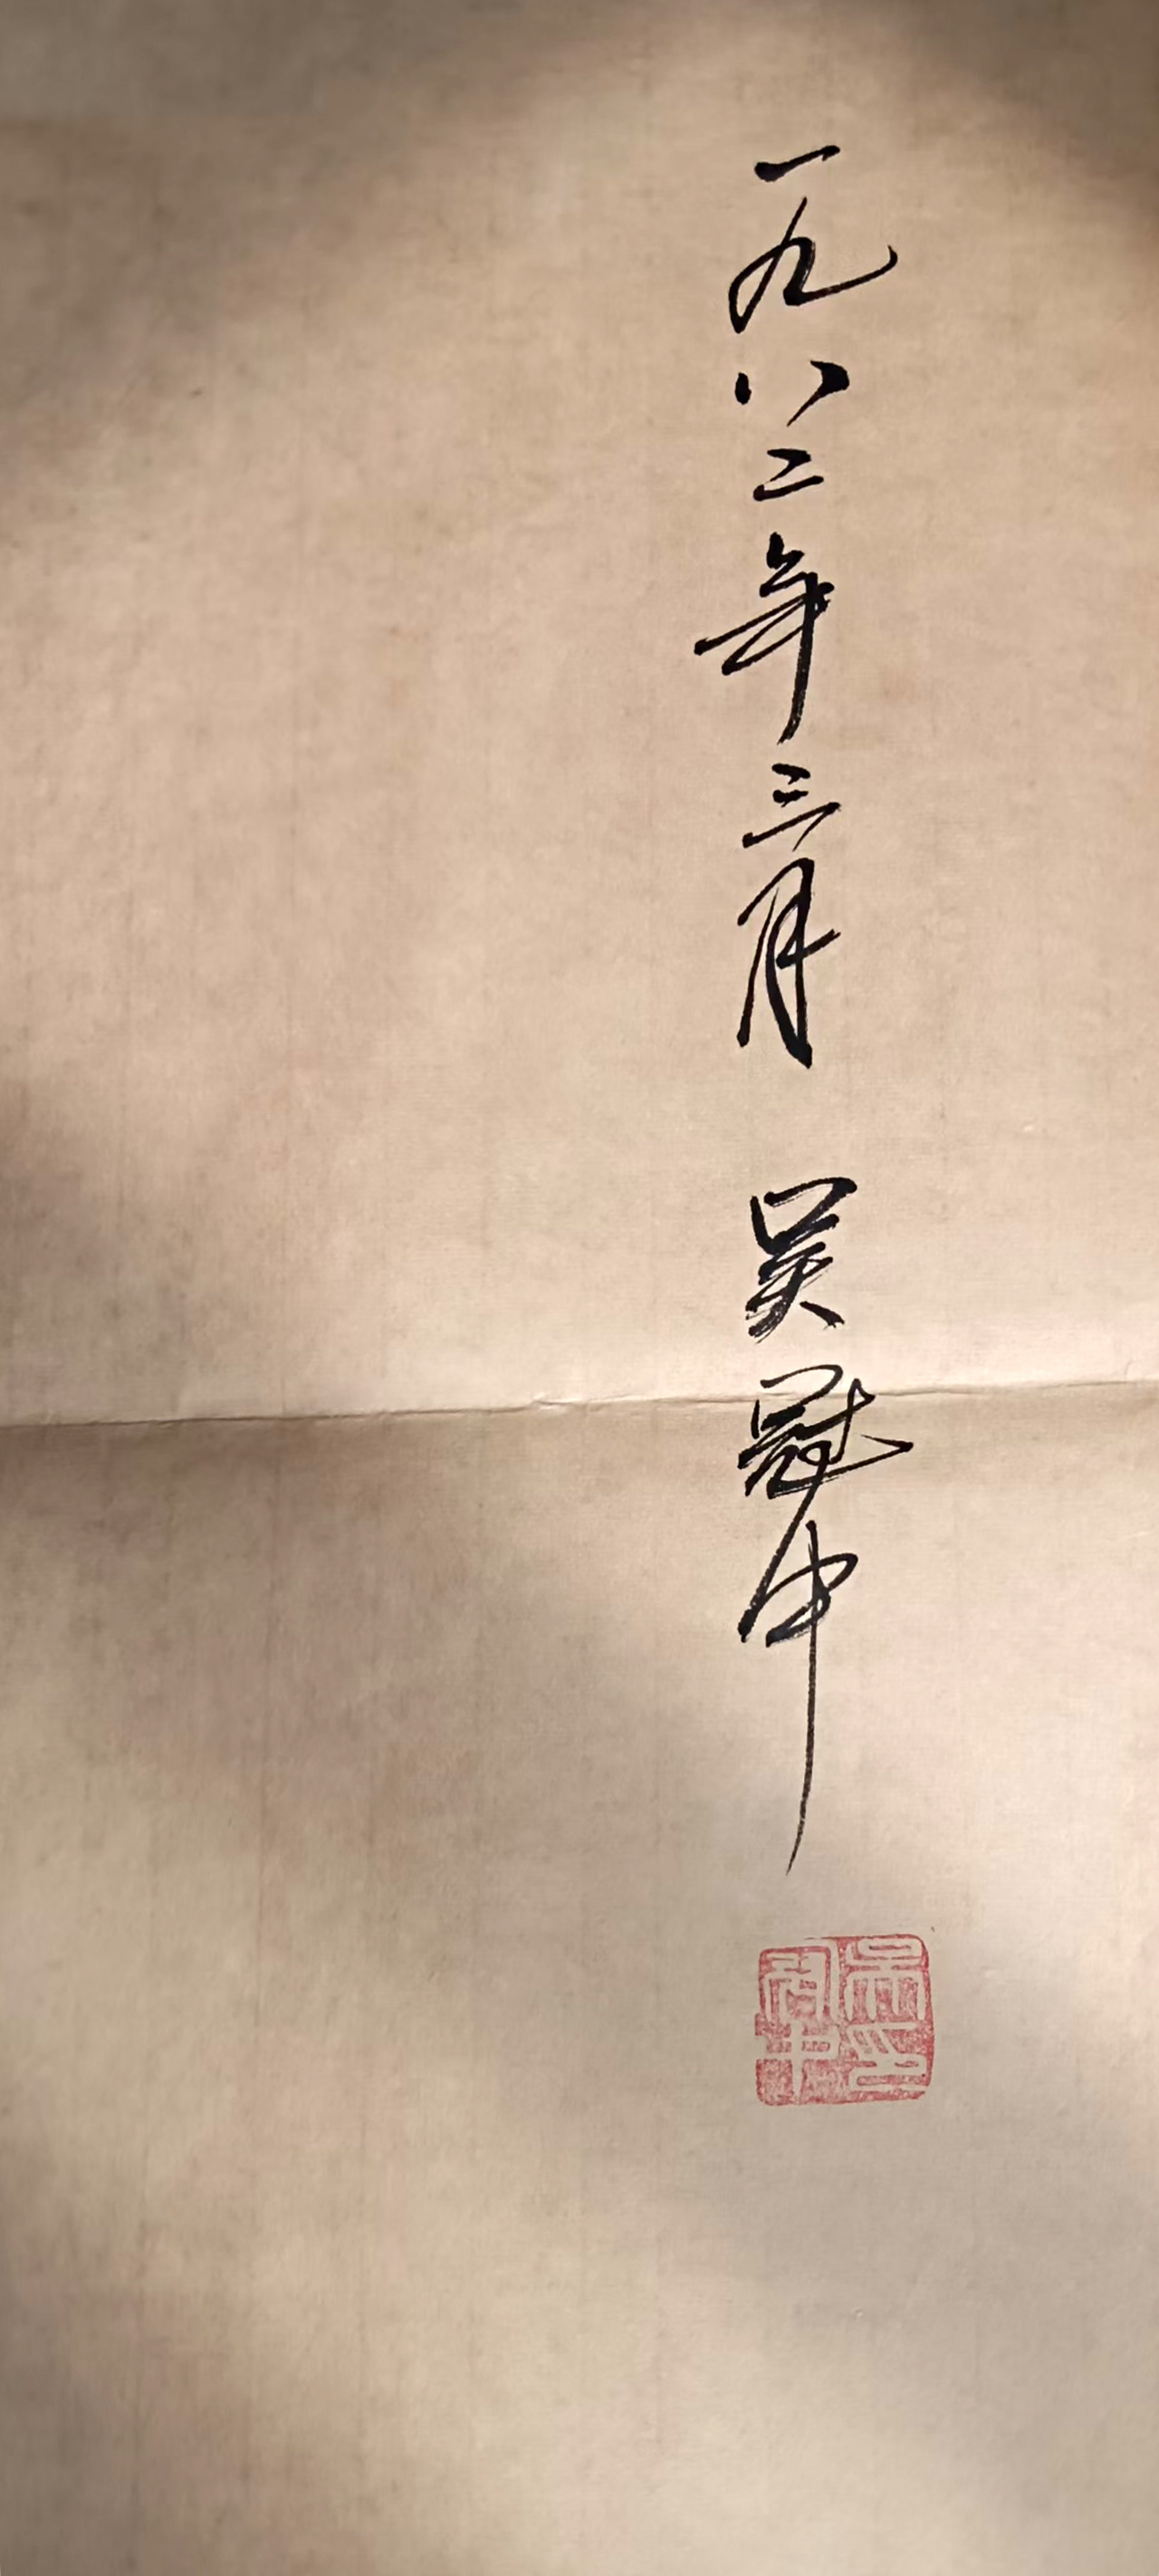 一九八二年三月 吴冠中
吴冠中印